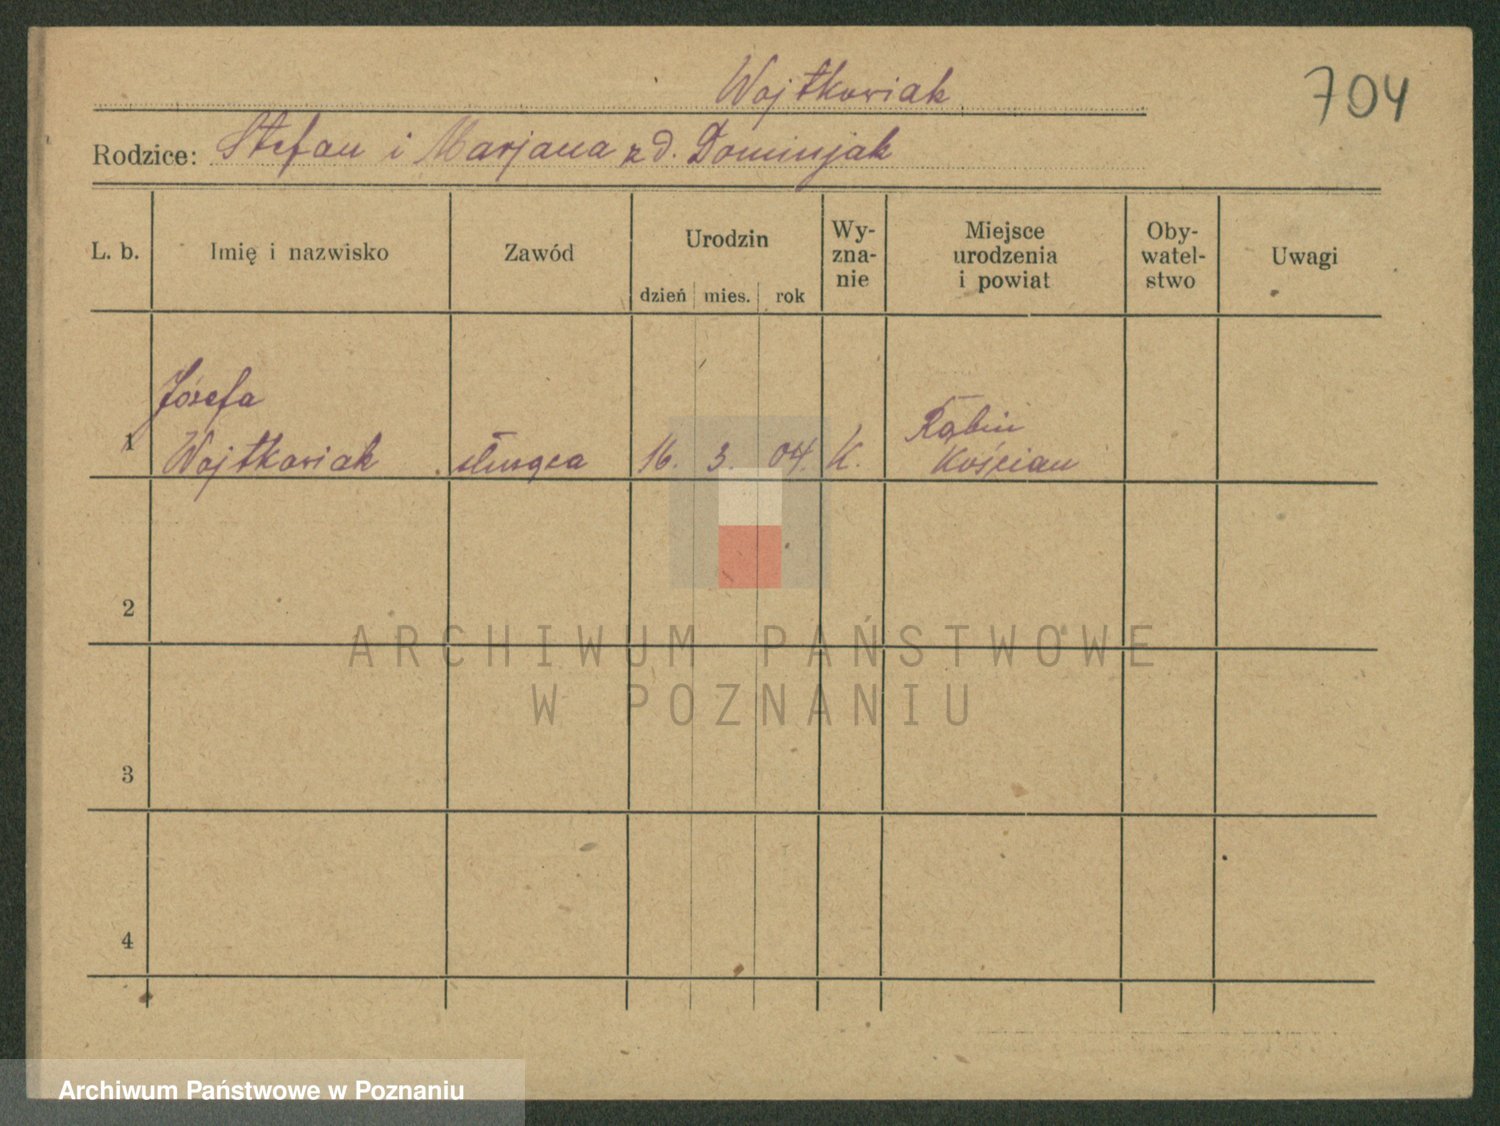 Wojtkowiak
704
Rodzice: Stefan i Marjana z d. Dominjak
L. b.
Imię i nazwisko
Zawód
Urodzin
dzień mies. rok
Wy-
zna-
nie
Miejsce
urodzenia
i powiat
Oby-
watel-
stwo
Uwagi
1
Józefa
Wojtkowiak
służąca
16. 3. 04.
K.
Rąbiń
Kościan
2
3
4
ARCHIWUM PAŃSTWOWE
W POZNANIU
Archiwum Państwowe w Poznaniu